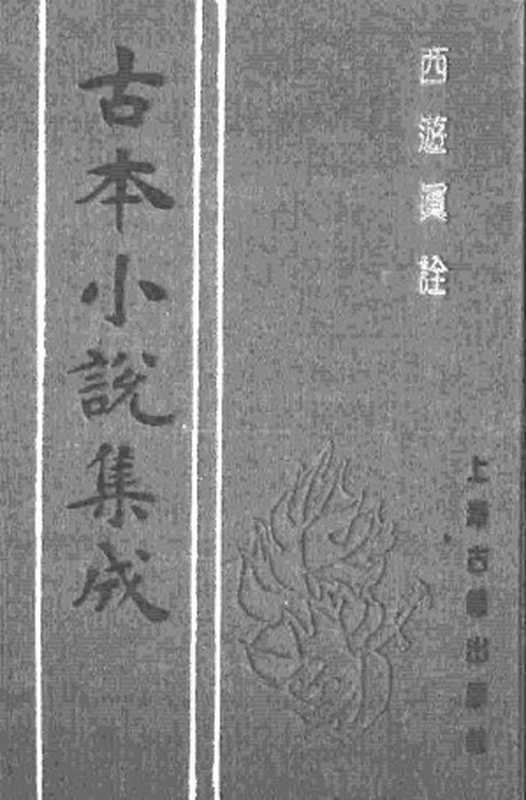 西遊真詮
上海古籍出版社
古本小說集成